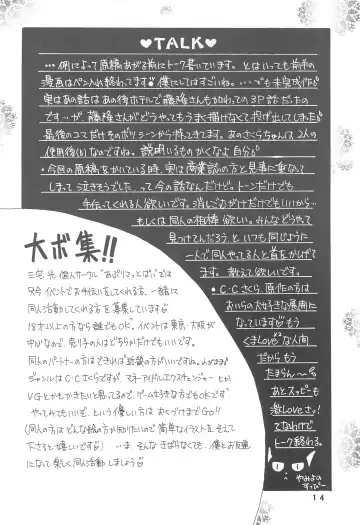 ♥TALK♥
…例によって原稿あがる前にトーク書いています。とはいっても相手の
漫画はペン入れ終わってます♥僕にしてはすごいね。…でも未完成作♥
実はあの話はあの後ホテルで藤隆さんも加わっての3P話だったの
です…が、藤隆さんがどうやってもうまく描けなくて投げ出してしまった♥
最後のコマだけそのボツシーンから持ってきてます。あのさくらちゃんは2人の
使用後(笑)なのですね。説明いるものかくなよ自分♥
・今回の原稿をかいている時、実は商業誌の方と見事に重なって
しまって泣きそうでした…って今の話なんだけど。トーンだけでも
手伝ってくれる人欲しいです。消しゴムがけだけでもいいから…
もしくは同人の相棒 欲しい。みんなどうやって
見つけてんだろう、といつも同じように
一人で同人やってる人と首をかしげて
ます。教えて欲しいです。
・C・Cさくら、原作の方は
おいらの大好きな展開に
なっています♥もう
くまLOVEな人間
だからもう
たまらん〜♥
あとスッピーも
激LOVEさっ!
てなわけで
トーク終わる。
やみよの
すっぴー
大ボ集!!
三宅光個人サークル「あぷりこっとぱい」では
只今イベントでお手伝いをしてくれる方、一緒に
同人活動してくれる方を募集しています♥
18才以上の方なら誰でもOK。イベントは東京・大阪が
中心なので、見学の人はどちらかだけでもいいです。
同人のパートナーの方はできれば近畿の方がいいですね。
ジャンルはC・Cさくらですが、マネーアイドルエクスチェンジャーとか
VGとかもかきたいと思ってるので、ゲーム好きな方でもOKです♥
やってみてもいいぞ、という優しい方はおくづけまでGo!!
(同人の方はどんな絵の方か知りたいので簡単なイラストを そえて
下さると嬉しいです♥) …ま、そんな きばらなくても、僕とお友達
になって楽しく同人活動しましょう♥
14